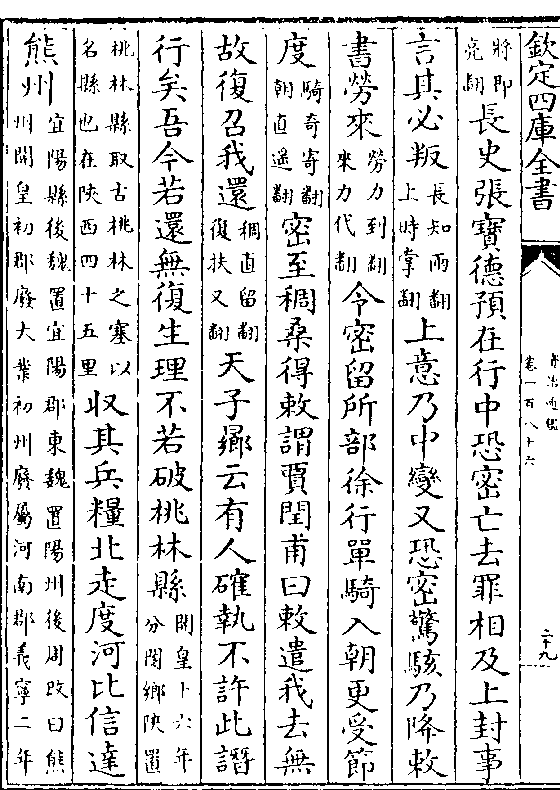 欽定四庫全書
資治通鑑
卷一百八十六
二十九
將即亮翻長史張寶德預在行中恐密亡去罪相及上封事
言其必叛長知兩翻上時掌翻上意乃中變又恐密驚駭乃降敕
書勞來勞力到翻來力代翻令密留所部徐行單騎入朝更受節
度騎奇寄翻朝直遥翻密至稠桑得敕謂賈閏甫曰敕遣我去無
故復召我還稠直留翻復扶又翻天子曏云有人確執不許此譖
行矣吾今若還無復生理不若破桃林縣開皇十六年分閿鄉陜置
桃林縣取古桃林之塞以名縣也在陜西四十五里收其兵糧北走度河比信達
熊州宜陽縣後魏置宜陽郡東魏置陽州後周改曰熊州開皇初郡廢大業初州廢屬河南郡義寧二年